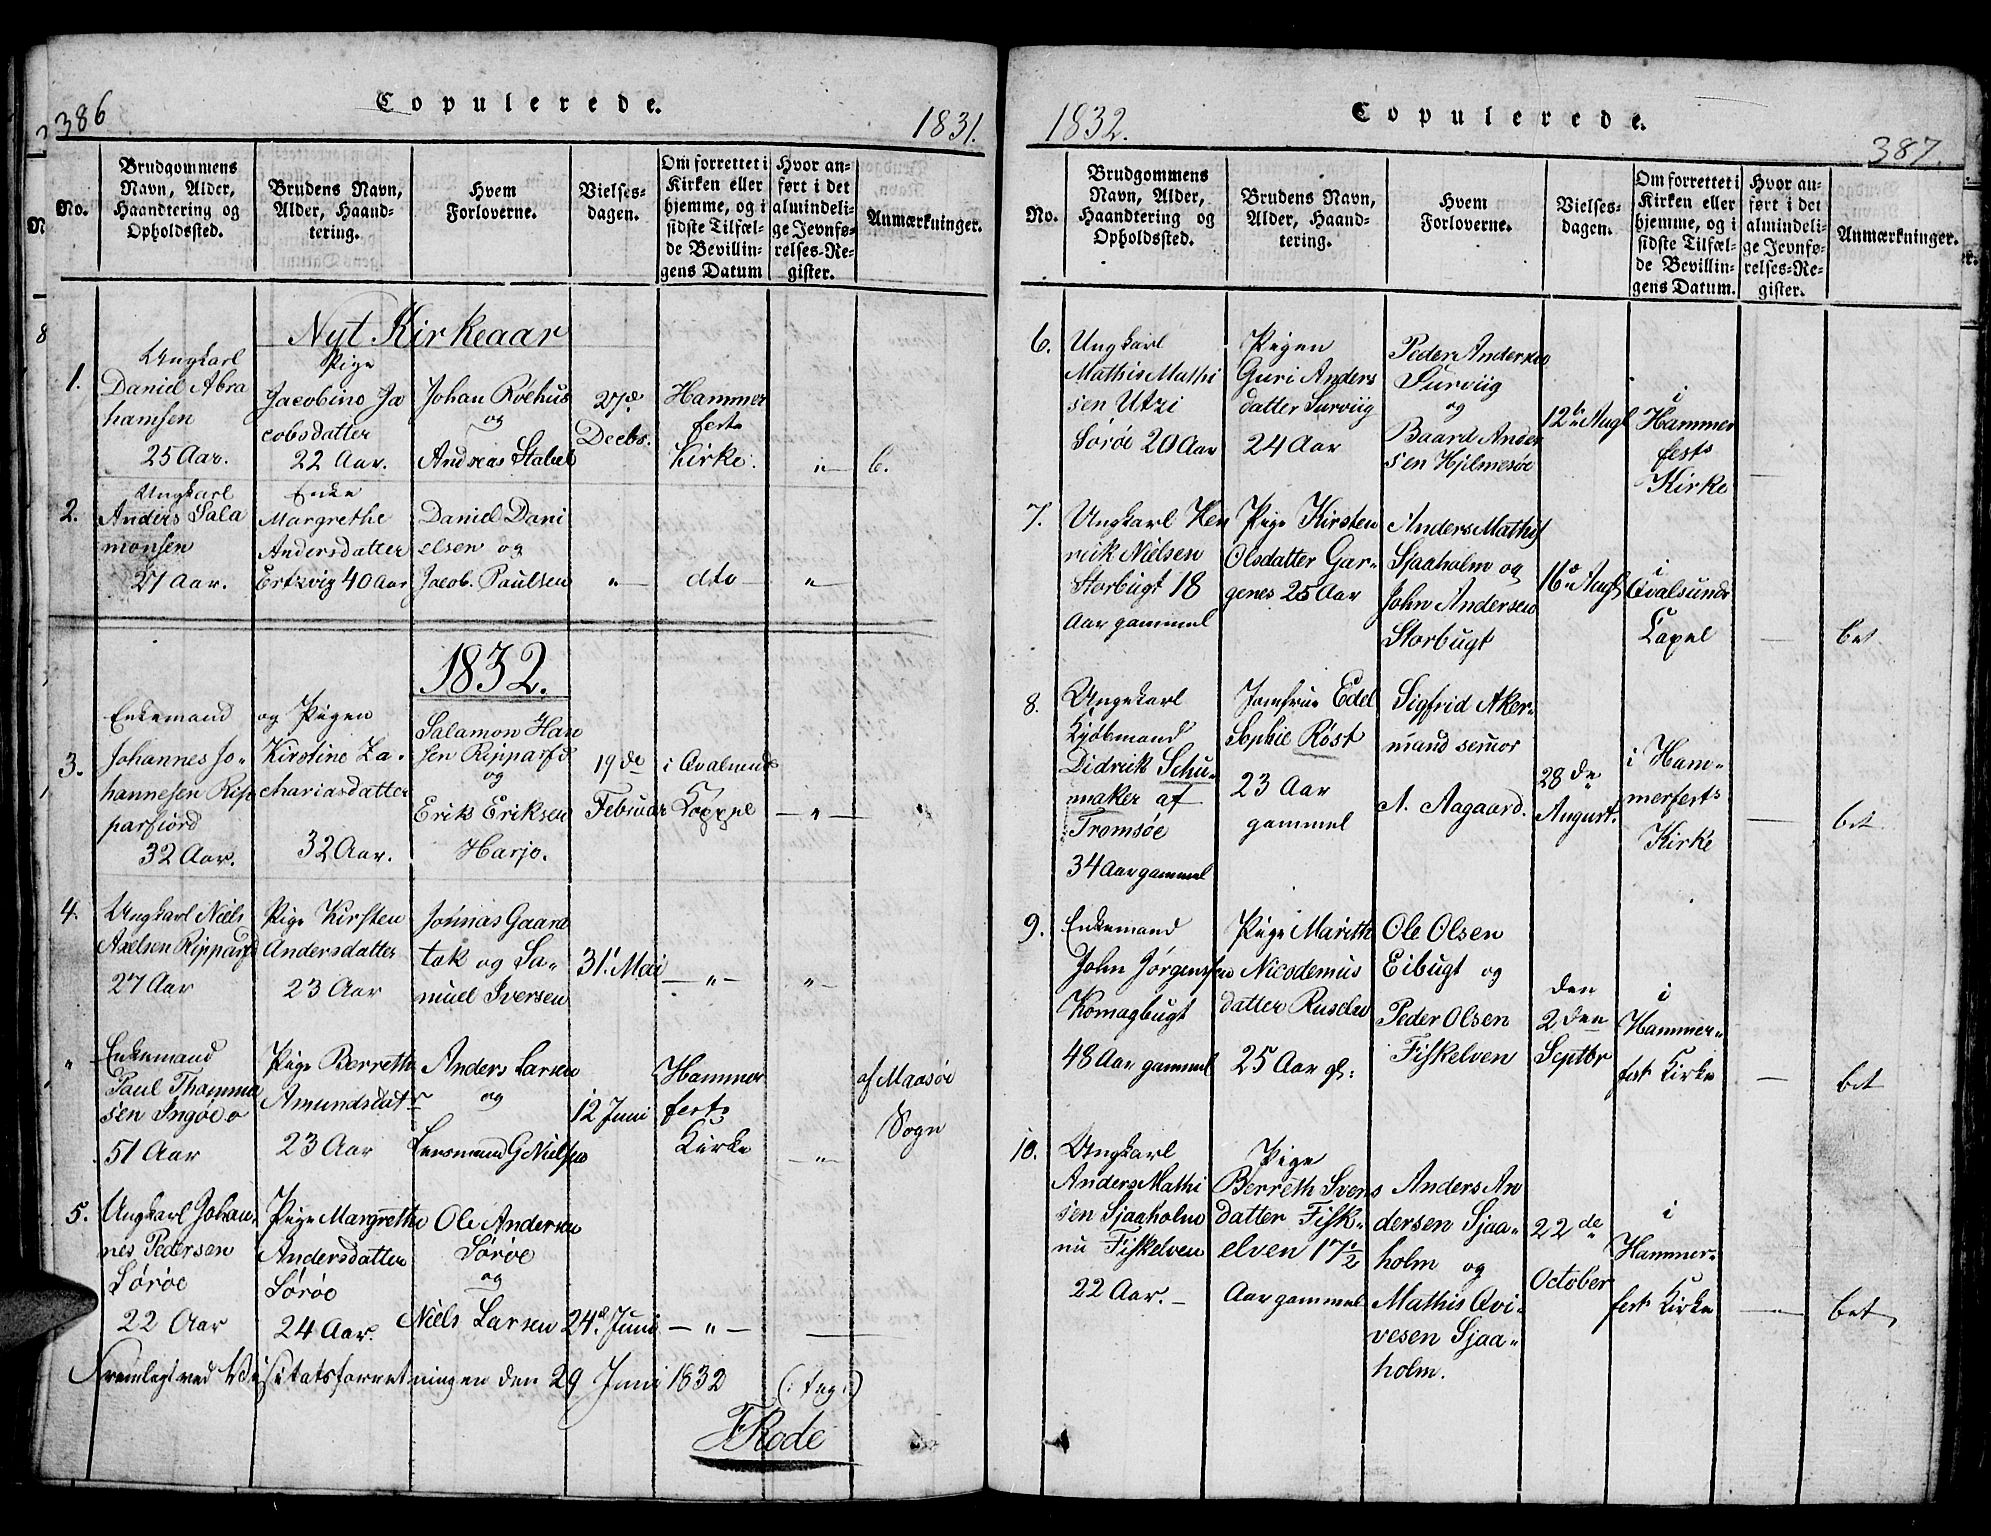 386
Copulerede.
1831.
No.
Brudgommens
Navn, Alder,
Haandtering og
Opholdssted.
Brudens Navn,
Alder, Haand-
tering.
Hvem
Forloverne.
Vielses-
dagen.
Om forrettet i
Kirken eller
hjemme, og i
sidste Tilfæl-
de Bevillin-
gens Datum
Hvor an-
ført i det
almindeli-
ge Jevnfø-
relses-Re-
gister.
Anmærkninger.
Nyt Kirkeaar
1.
Ungkarl
Daniel Abra
hamsen
25 Aar.
Pige
Jacobine Ja
cobsdatter
22 Aar.
Johan Röehus
og
Andreas Stabel
27de
Decbr.
Hammer
fest
Kirke.
"
b.
2.
Ungkarl
Anders Sala
monsen
27 Aar.
Enke
Margrethe
Andersdatter
Ertzvig 40 Aar
Daniel Dani
elsen og
Jacob Paulsen
"
dto
"
1832.
3.
Enkemand
Johannes Jo-
hannesen Rip
parfiord
32 Aar.
og Pigen
Kirstine Za-
chariasdatter
32 Aar.
Salamon Han
sen Ripparfd
og
Erik Eriksen
Harjo.
19de
Februar
i Qvalsunds
Cappel
"
4.
Ungkarl Niels
Axelsen Ripparfd
27 Aar
Pige Kirsten
Andersdatter
23 Aar
Jonnas Gaare
tak og Sa-
muel Iversen
31t Mai
"
"
"
Enkemand
Paul Thamma
sen Ingöe
51 Aar
Pige Berreth
Amundsdatr
23 Aar
Anders Larsen
og
Lensmand G Nielsen
12 Juni
Hammer
fest
Kirke
"
af Maasöe
Sogn
5.
Ungkarl Johan-
nes Pedersen
Söröe
22 Aar
Pige Margrethe
Andersdatter
Söröe
24 Aar.
Ole Andersen
Söröe
og
Niels Larsen
24d. Juni
"
Fremlagt ved Visitatsforretningen den 29 Juni 1832 (: teg :)
F Rode
1832.
Copulerede.
387.
No.
Brudgommens
Navn, Alder,
Haandtering og
Opholdssted.
Brudens Navn,
Alder, Haand-
tering.
Hvem
Forloverne.
Vielses-
dagen.
Om forrettet i
Kirken eller
hjemme, og i
sidste Tilfæl-
de Bevillin-
gens Datum.
Hvor an-
ført i det
almindeli-
ge Jevnfø-
relses-Re-
gister.
Anmærkninger.
6.
Ungkarl
Mathis Mathi
sen Utzi
Söröe 20 Aar
Pigen
Guri Anders
datter Surviig
24 Aar
Peder Andersen
Surviig
og
Baard Ander
sen Hjelmesöe
12te Augt
i
Hammer
fest
Kirke
7.
Ungkarl Hen
rick Nielsen
Storbugt 18
Aar gammel
Pige Kirsten
Olsdatter Gar-
genes 25 Aar
Anders Mathis
Sjaaholm og
John Andersen
Storbugt
16de Augt
i
Qvalsunds
Capel
bet
8.
Ungkarl
Kjöbmand
Didrick Schu-
maker af
Tromsöe
34 Aar gammel
Jomfrue Edel
Sophie Röst
23 Aar
gammel
Sigfrid Aker-
mand senior
A. Aagaard.
28de
August.
i Ham-
merfest
Kirke
bet.
9.
Enkemand
John Jörgensen
Komagbugt
48 Aar gammel
Pige Marith
Nicodemus
datter Russelv
25 Aar gl:
Ole Olsen
Eibugt og
Peder Olsen
Fiskelven
den
2den
Septbr
i
Hammer-
fest Kirke
bet
10.
Ungkarl
Anders Mathi
sen Sjaaholm
nu Fiskelven
22 Aar.
Pige
Berreth Svens
datter Fisk-
elven 17 1/2
Aar gammel
Anders An
dersen Sjaa-
holm og
Mathis Qvi-
vesen Sjaa-
holm.
22de
October
i
Hammer-
fest Kirke
bet